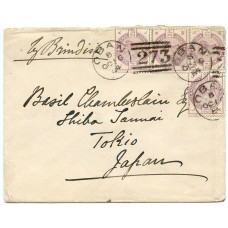 by Brindisi
OBAN
273
OBAN
Basil Chamberlain Esq
Shiba Sannai
Tokio
Japan